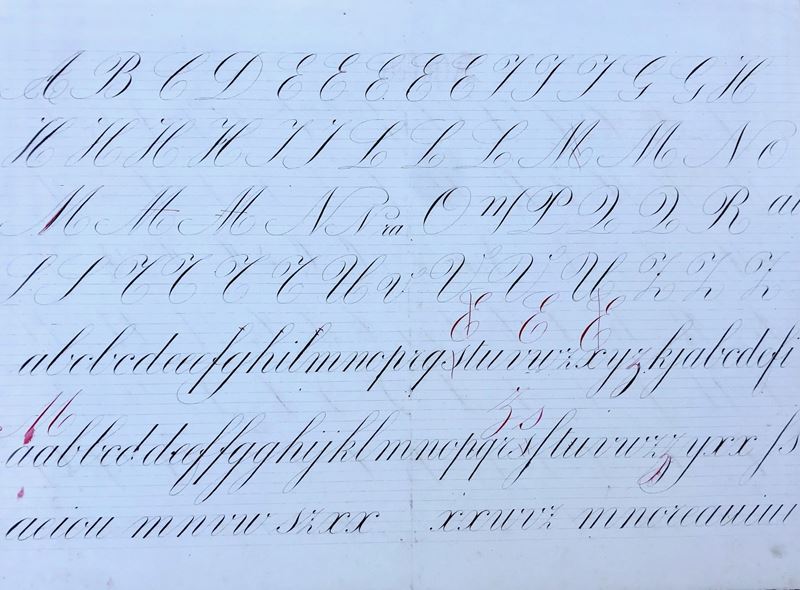 A B C D E E E E E I I I G G H
H H H H I I L L L M M N O
M M M N N ra O n P Q Q R au
I I T T T T U v V V U Z Z Z
E E E
abcbcdeefghilmnoprqstuvwzxyzkjabcdefi
M z s
aabbcddeeffgghijklmnopqrsftuvwzzyxx fs
aeiou mnvw szxx xxwvz mnoreauiuu